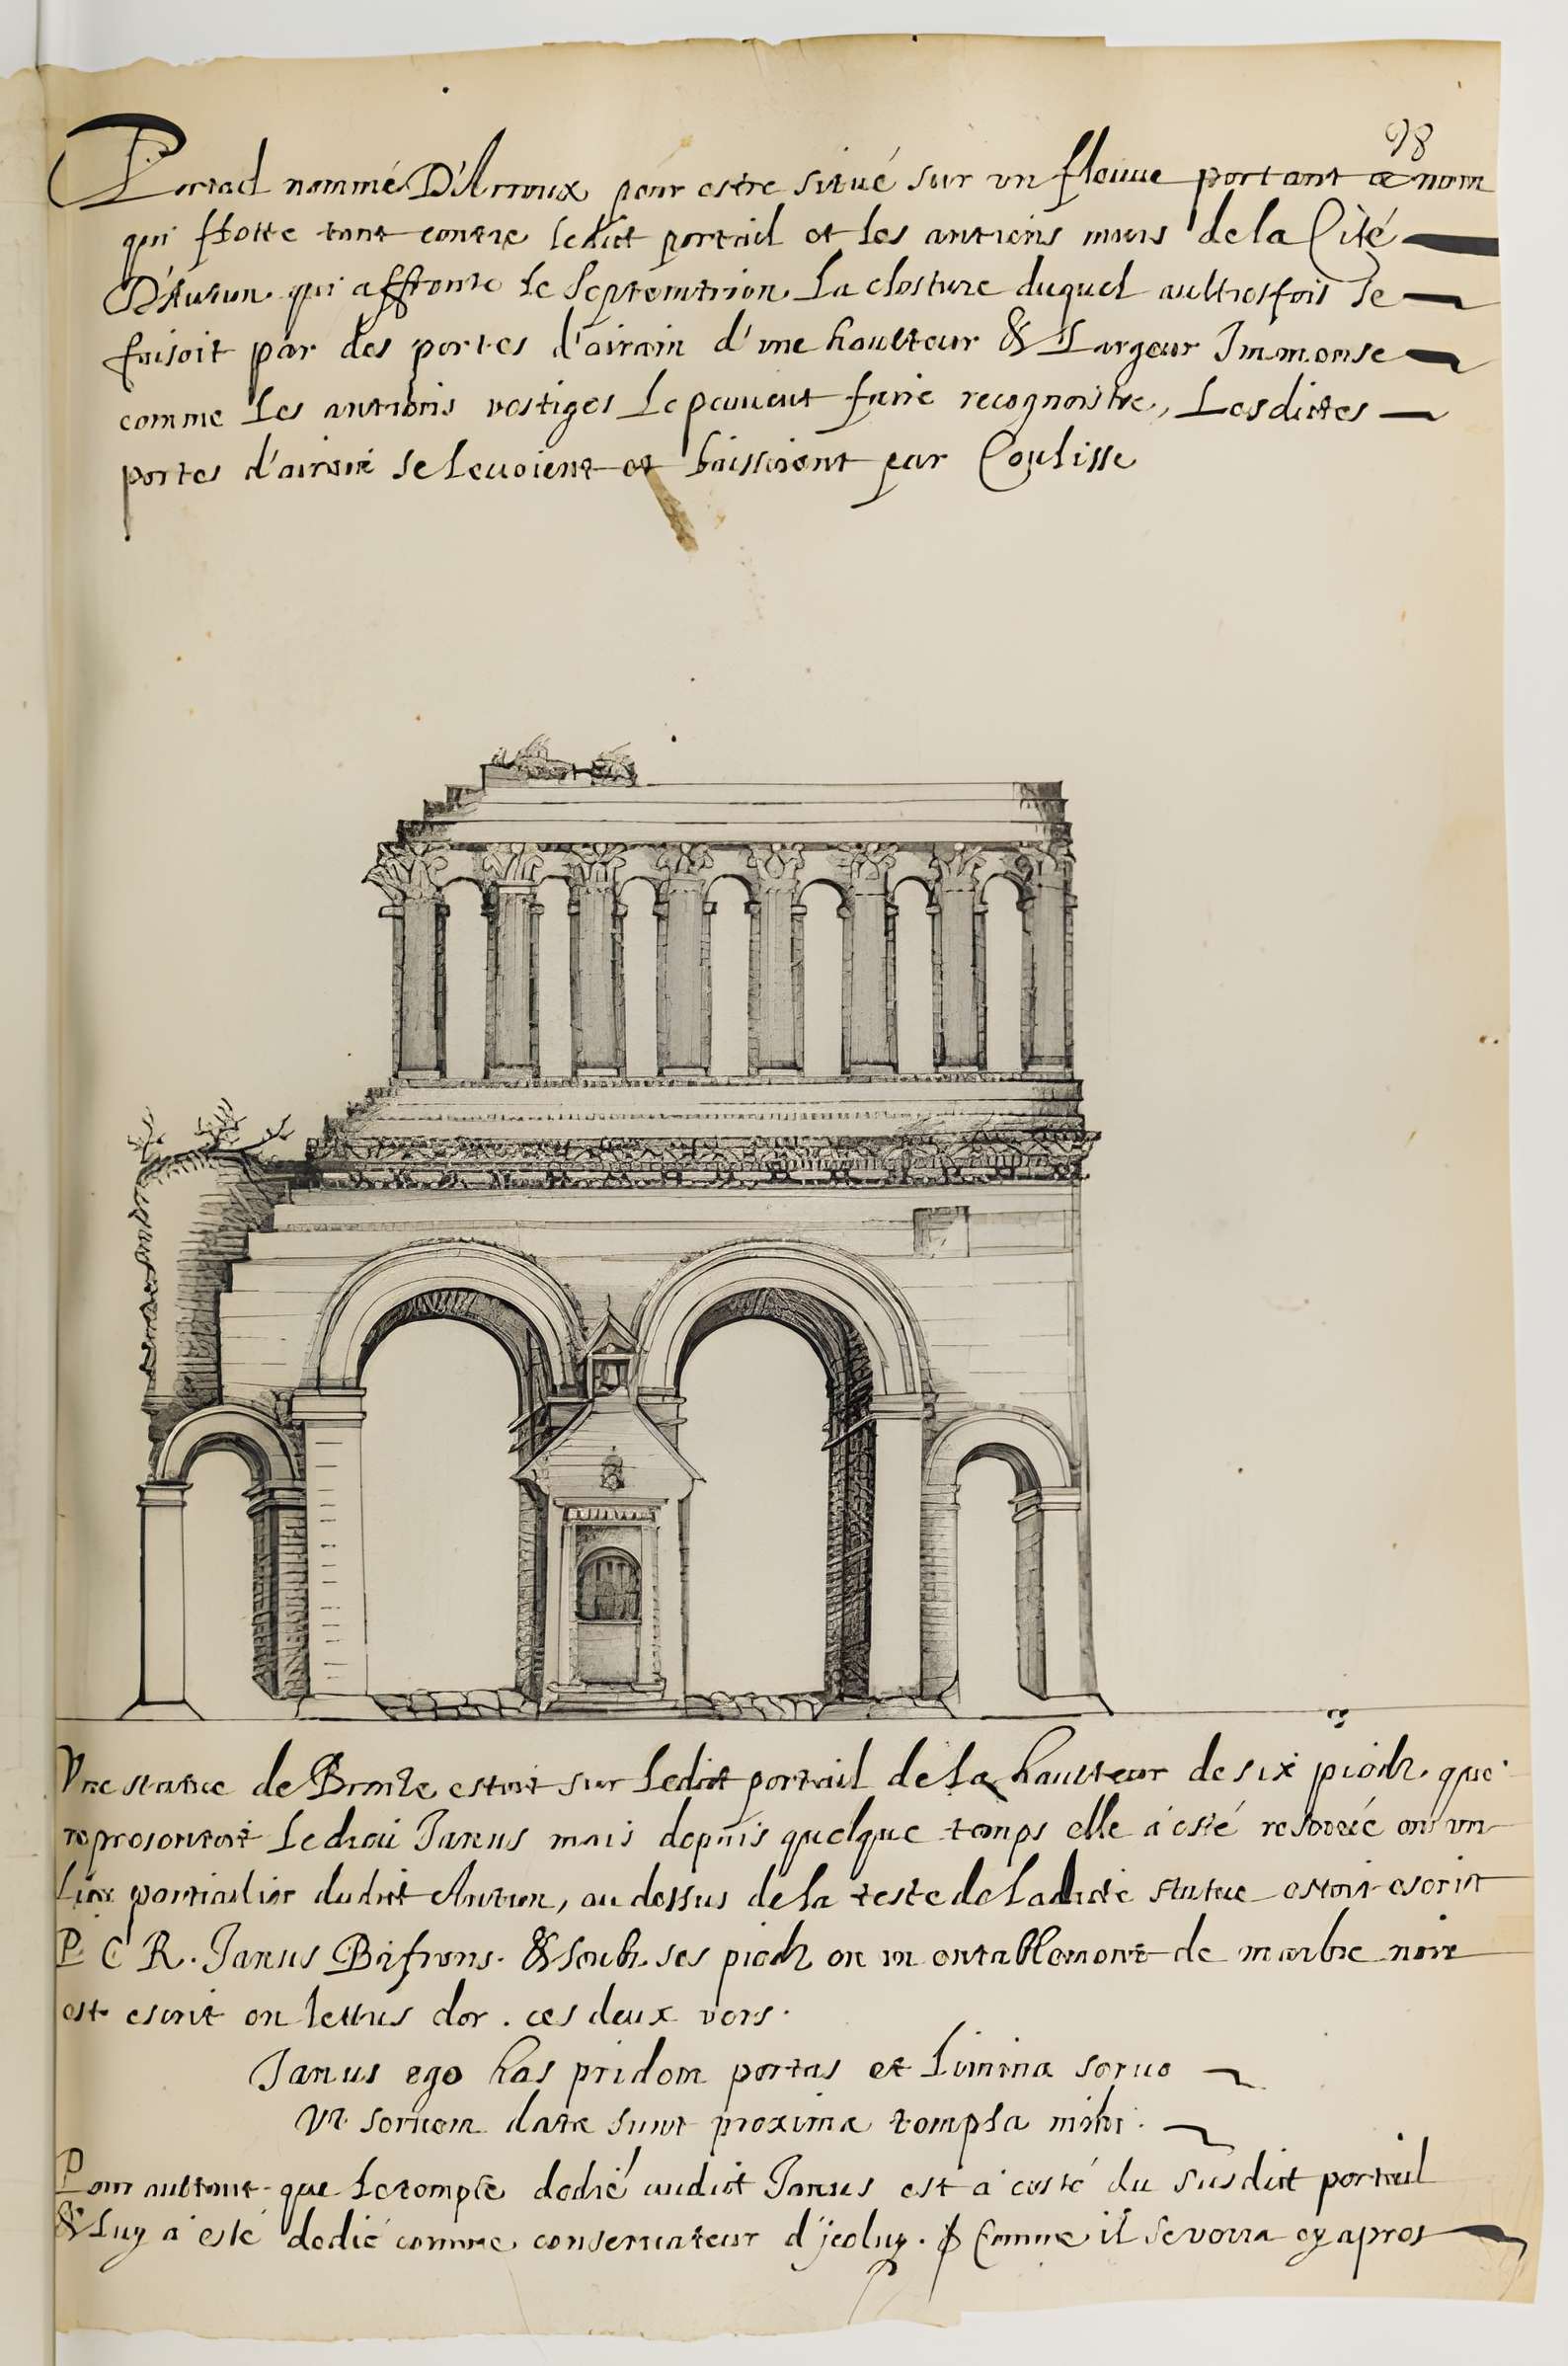 98
Portail nommé D'Arroux pour estre situé sur vn fleuue portant ce nom
qui flotte tant contre ledict portail et les antiens murs de la Cité
D'Autun qui affronte le septemtrion La closture duquel aultresfois se
faisoit par des portes d'airain d'une haulteur & Largeur Immense
comme les antiens vestiges le peuuent faire recognoistre, Lesdictes
portes d'airain se leuoient et baissoient par Coulisse
Vne statue de Bronze estoit sur ledict portail de la haulteur de six piedz que
representoit Le dieu Janus mais depuis quelque temps elle a esté reserrée en vn
lieu particulier dudict Autun, au dessus de la teste de Ladicte statue estoit escrit
P C R. Janus Bifrons. & soubz ses piedz en vn entablement de marbre noir
est escrit en lettres dor. ces deux vers.
Janus ego has pridem portas et Limina seruo
Vt seruem datæ sunt proxima templa mihi.
Pour aultant que le temple dedié audict Janus est a costé du susdict portail
& Luy a esté dedié comme conseruateur d'jceluy. Comme il se verra cy apres